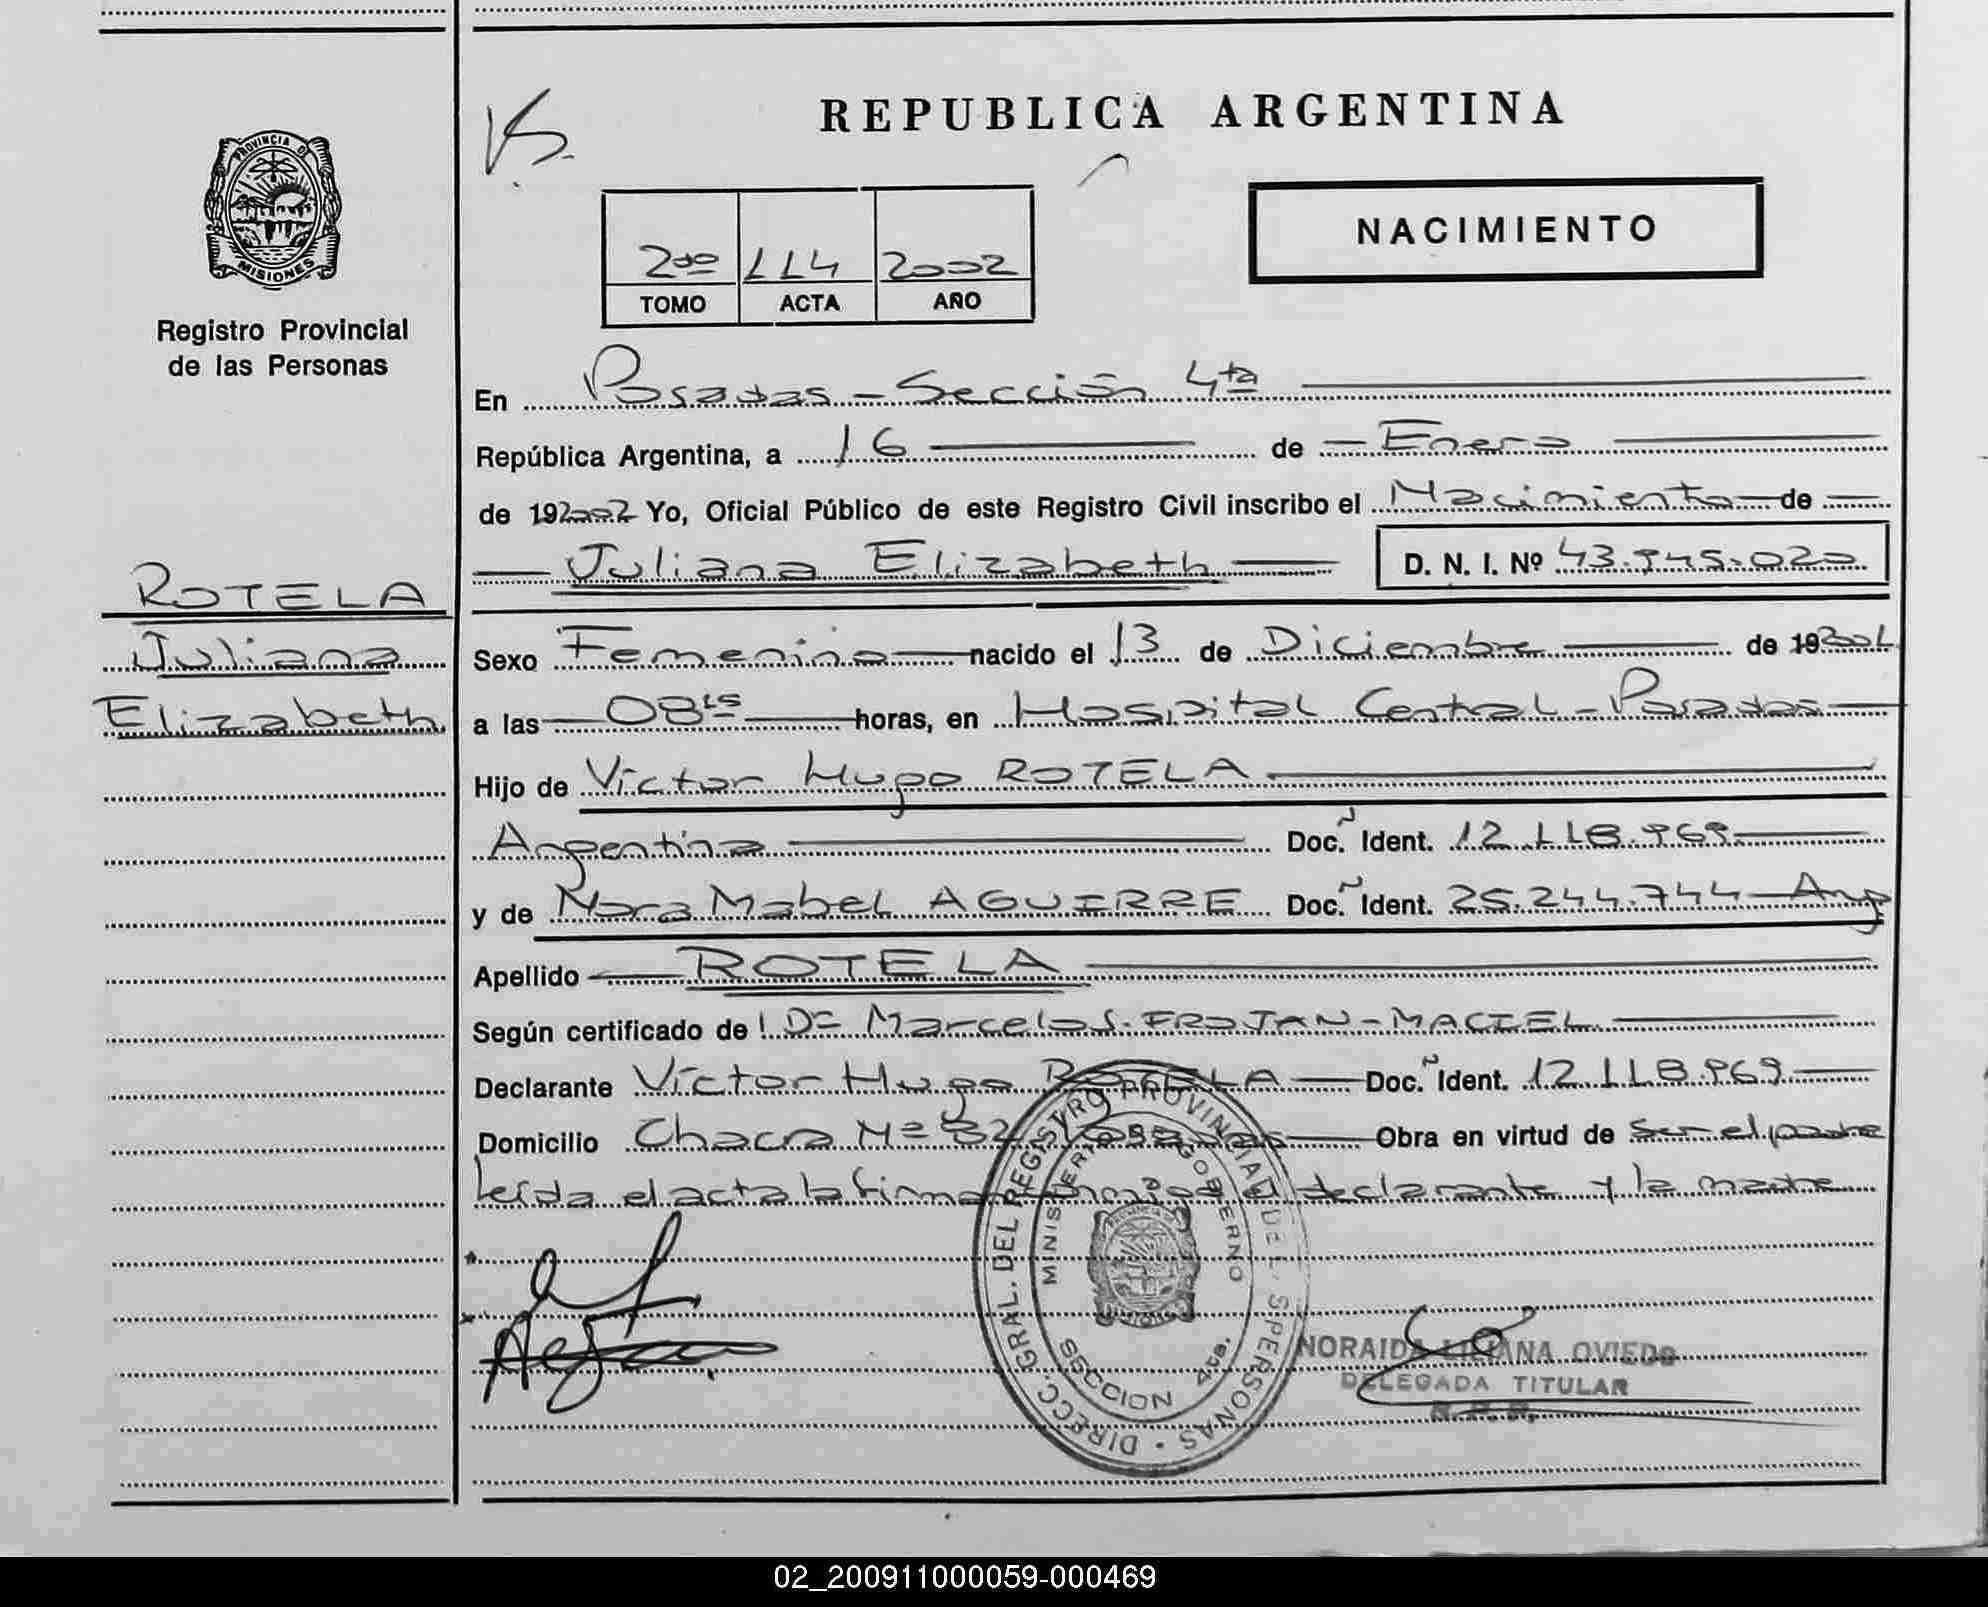 REPUBLICA ARGENTINA
PROVINCIA DE
MISIONES
Registro Provincial
de las Personas
2do 114 2002
TOMO ACTA AÑO
NACIMIENTO
En Posadas - Sección 4ta
República Argentina, a 16 de Enero
de 192002 Yo, Oficial Público de este Registro Civil inscribo el Nacimiento de
Juliana Elizabeth D. N. I. Nº 43.945.020
ROTELA
Juliana
Elizabeth
Sexo Femenino nacido el 13 de Diciembre de 192001
a las 08 hs horas, en Hospital Central - Posadas
Hijo de Víctor Hugo ROTELA
Argentina Doc. Ident. 12.118.969
y de Nora Mabel AGUIRRE Doc. Ident. 25.244.744 - Arg
Apellido ROTELA
Según certificado de Dr Marcelo S. FROJAN - MACIEL
Declarante Víctor Hugo ROTELA Doc. Ident. 12.118.969
Domicilio Chacra Nº 32 Posadas Obra en virtud de ser el padre
leída el acta la firman conmigo el declarante y la madre
DIRECC. GRAL. DEL REGISTRO PROVINCIAL DE L. S PERSONAS
MINISTERIO GOBIERNO
SECCION 4ta.
NORAIDA LILIANA OVIEDO
DELEGADA TITULAR
R. P. P.
02_200911000059-000469